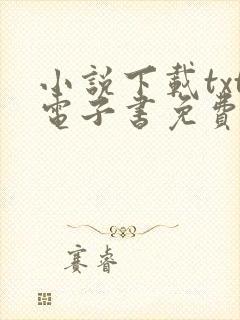 小説下載txt
電子書免費
賽睿